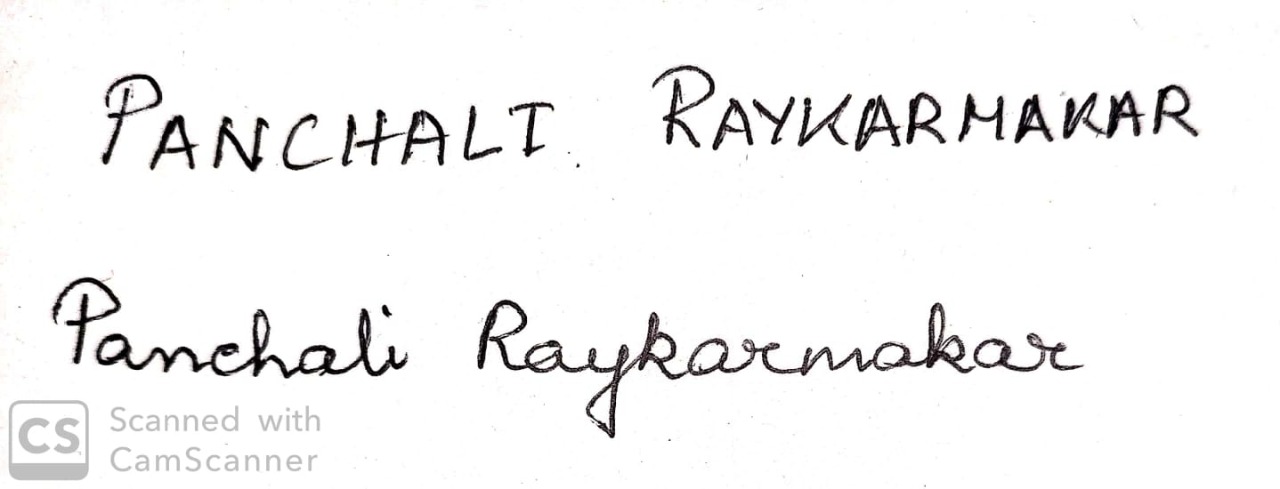 PANCHALI. RAYKARMAKAR
Panchali Raykarmakar
CS Scanned with
CamScanner